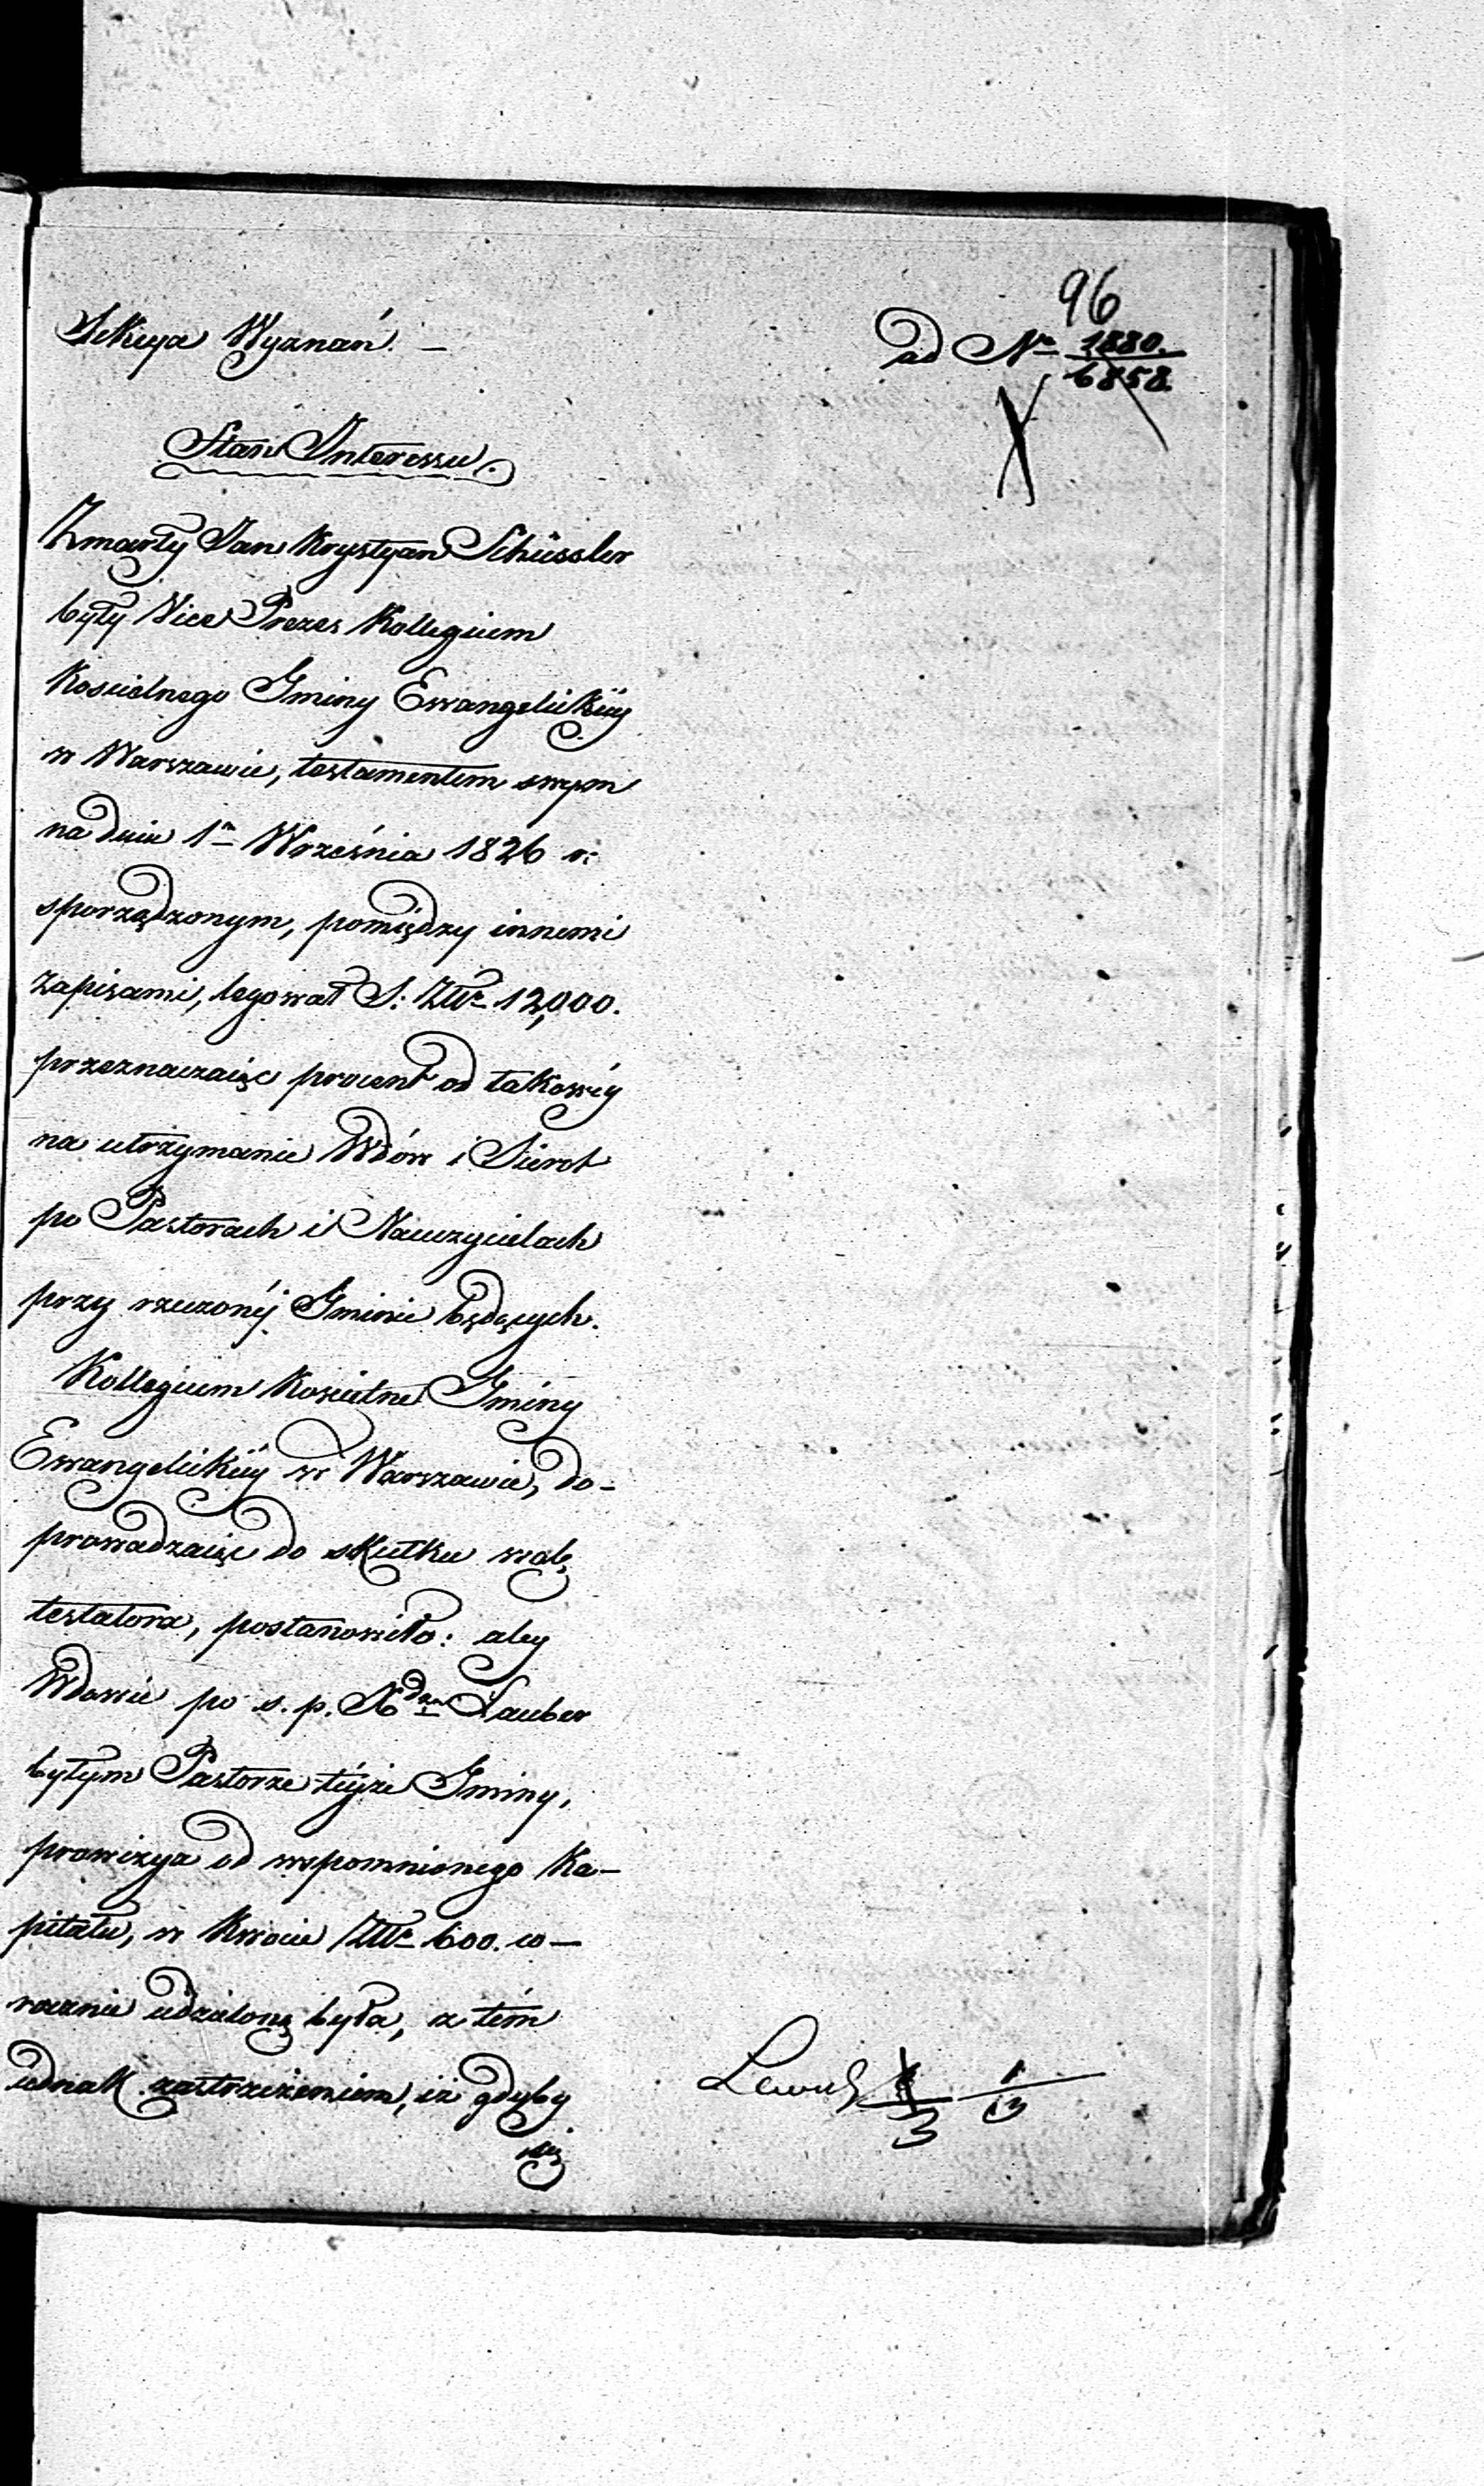 96
Sekcya Wyznań. –
ad Nro 1880.
6858.
Stan Interessu.
Zmarły Jan Krystyan Schüssler
były Vice Prezes Kollegium
Koscielnego Gminy Ewangelickiéy
w Warszawie, testamentem swym
na dniu 1m Września 1826 r:
sporządzonym, pomiędzy innemi
zapisami, legował S: Złp. 12,000.
przeznaczaiąc procent od takowéy
na utrzymanie Wdów i Sierot
po Pastorach i Nauczycielach
przy rzeczonéy Gminie będących.
Kollegium Koscielne Gminy
Ewangelickiéy w Warszawie, do-
prowadzaiąc do skutku wolę
testatora, postanowiło: aby
Wdowie po s. p. Xdzu Lauber
byłym Pastorze téyże Gminy,
prowizya od wspomnionego Ka-
pitału, w kwocie Złp. 600. co-
rocznie udzieloną była, z tém
iednak zastrzeżeniem, iż gdyby
się